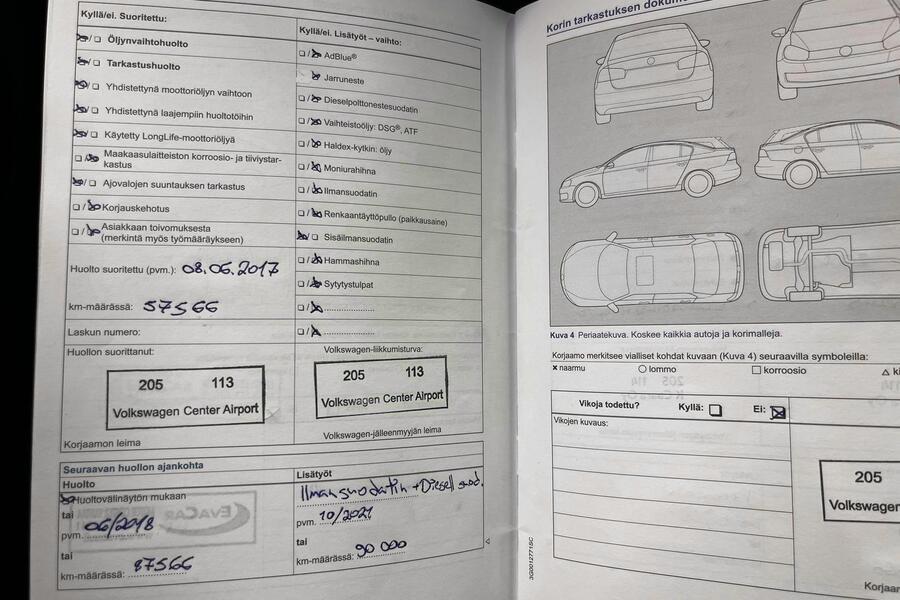 Kyllä/ei. Suoritettu:
Öljynvaihtohuolto
Tarkastushuolto
Yhdistettynä moottoriöljyn vaihtoon
Yhdistettynä laajempiin huoltotöihin
Käytetty LongLife-moottoriöljyä
Maakaasulaitteiston korroosio- ja tiiviystar-
kastus
Ajovalojen suuntauksen tarkastus
Korjauskehotus
Asiakkaan toivomuksesta
(merkintä myös työmääräykseen)
Huolto suoritettu (pvm.): 08.06.2017
km-määrässä: 57566
Laskun numero:
Huollon suorittanut:
205 113
Volkswagen Center Airport
Korjaamon leima
Kyllä/ei. Lisätyöt – vaihto:
AdBlue®
Jarruneste
Dieselpolttonestesuodatin
Vaihteistoöljy: DSG®, ATF
Haldex-kytkin: öljy
Moniurahihna
Ilmansuodatin
Renkaantäyttöpullo (paikkausaine)
Sisäilmansuodatin
Hammashihna
Sytytystulpat
Volkswagen-liikkumisturva:
205 113
Volkswagen Center Airport
Volkswagen-jälleenmyyjän leima
Seuraavan huollon ajankohta
Huolto
Huoltovälinäytön mukaan
tai
pvm. 06/2018
tai
km-määrässä: 87566
Lisätyöt
Ilmansuodatin + Diesel suod.
pvm. 10/2021
tai
km-määrässä: 90 000
Korin tarkastuksen
Kuva 4 Periaatekuva. Koskee kaikkia autoja ja korimalleja.
Korjaamo merkitsee vialliset kohdat kuvaan (Kuva 4) seuraavilla symboleilla:
naarmu
lommo
korroosio
Vikoja todettu? Kyllä: Ei:
Vikojen kuvaus:
205
Volkswagen
3G0012771SC